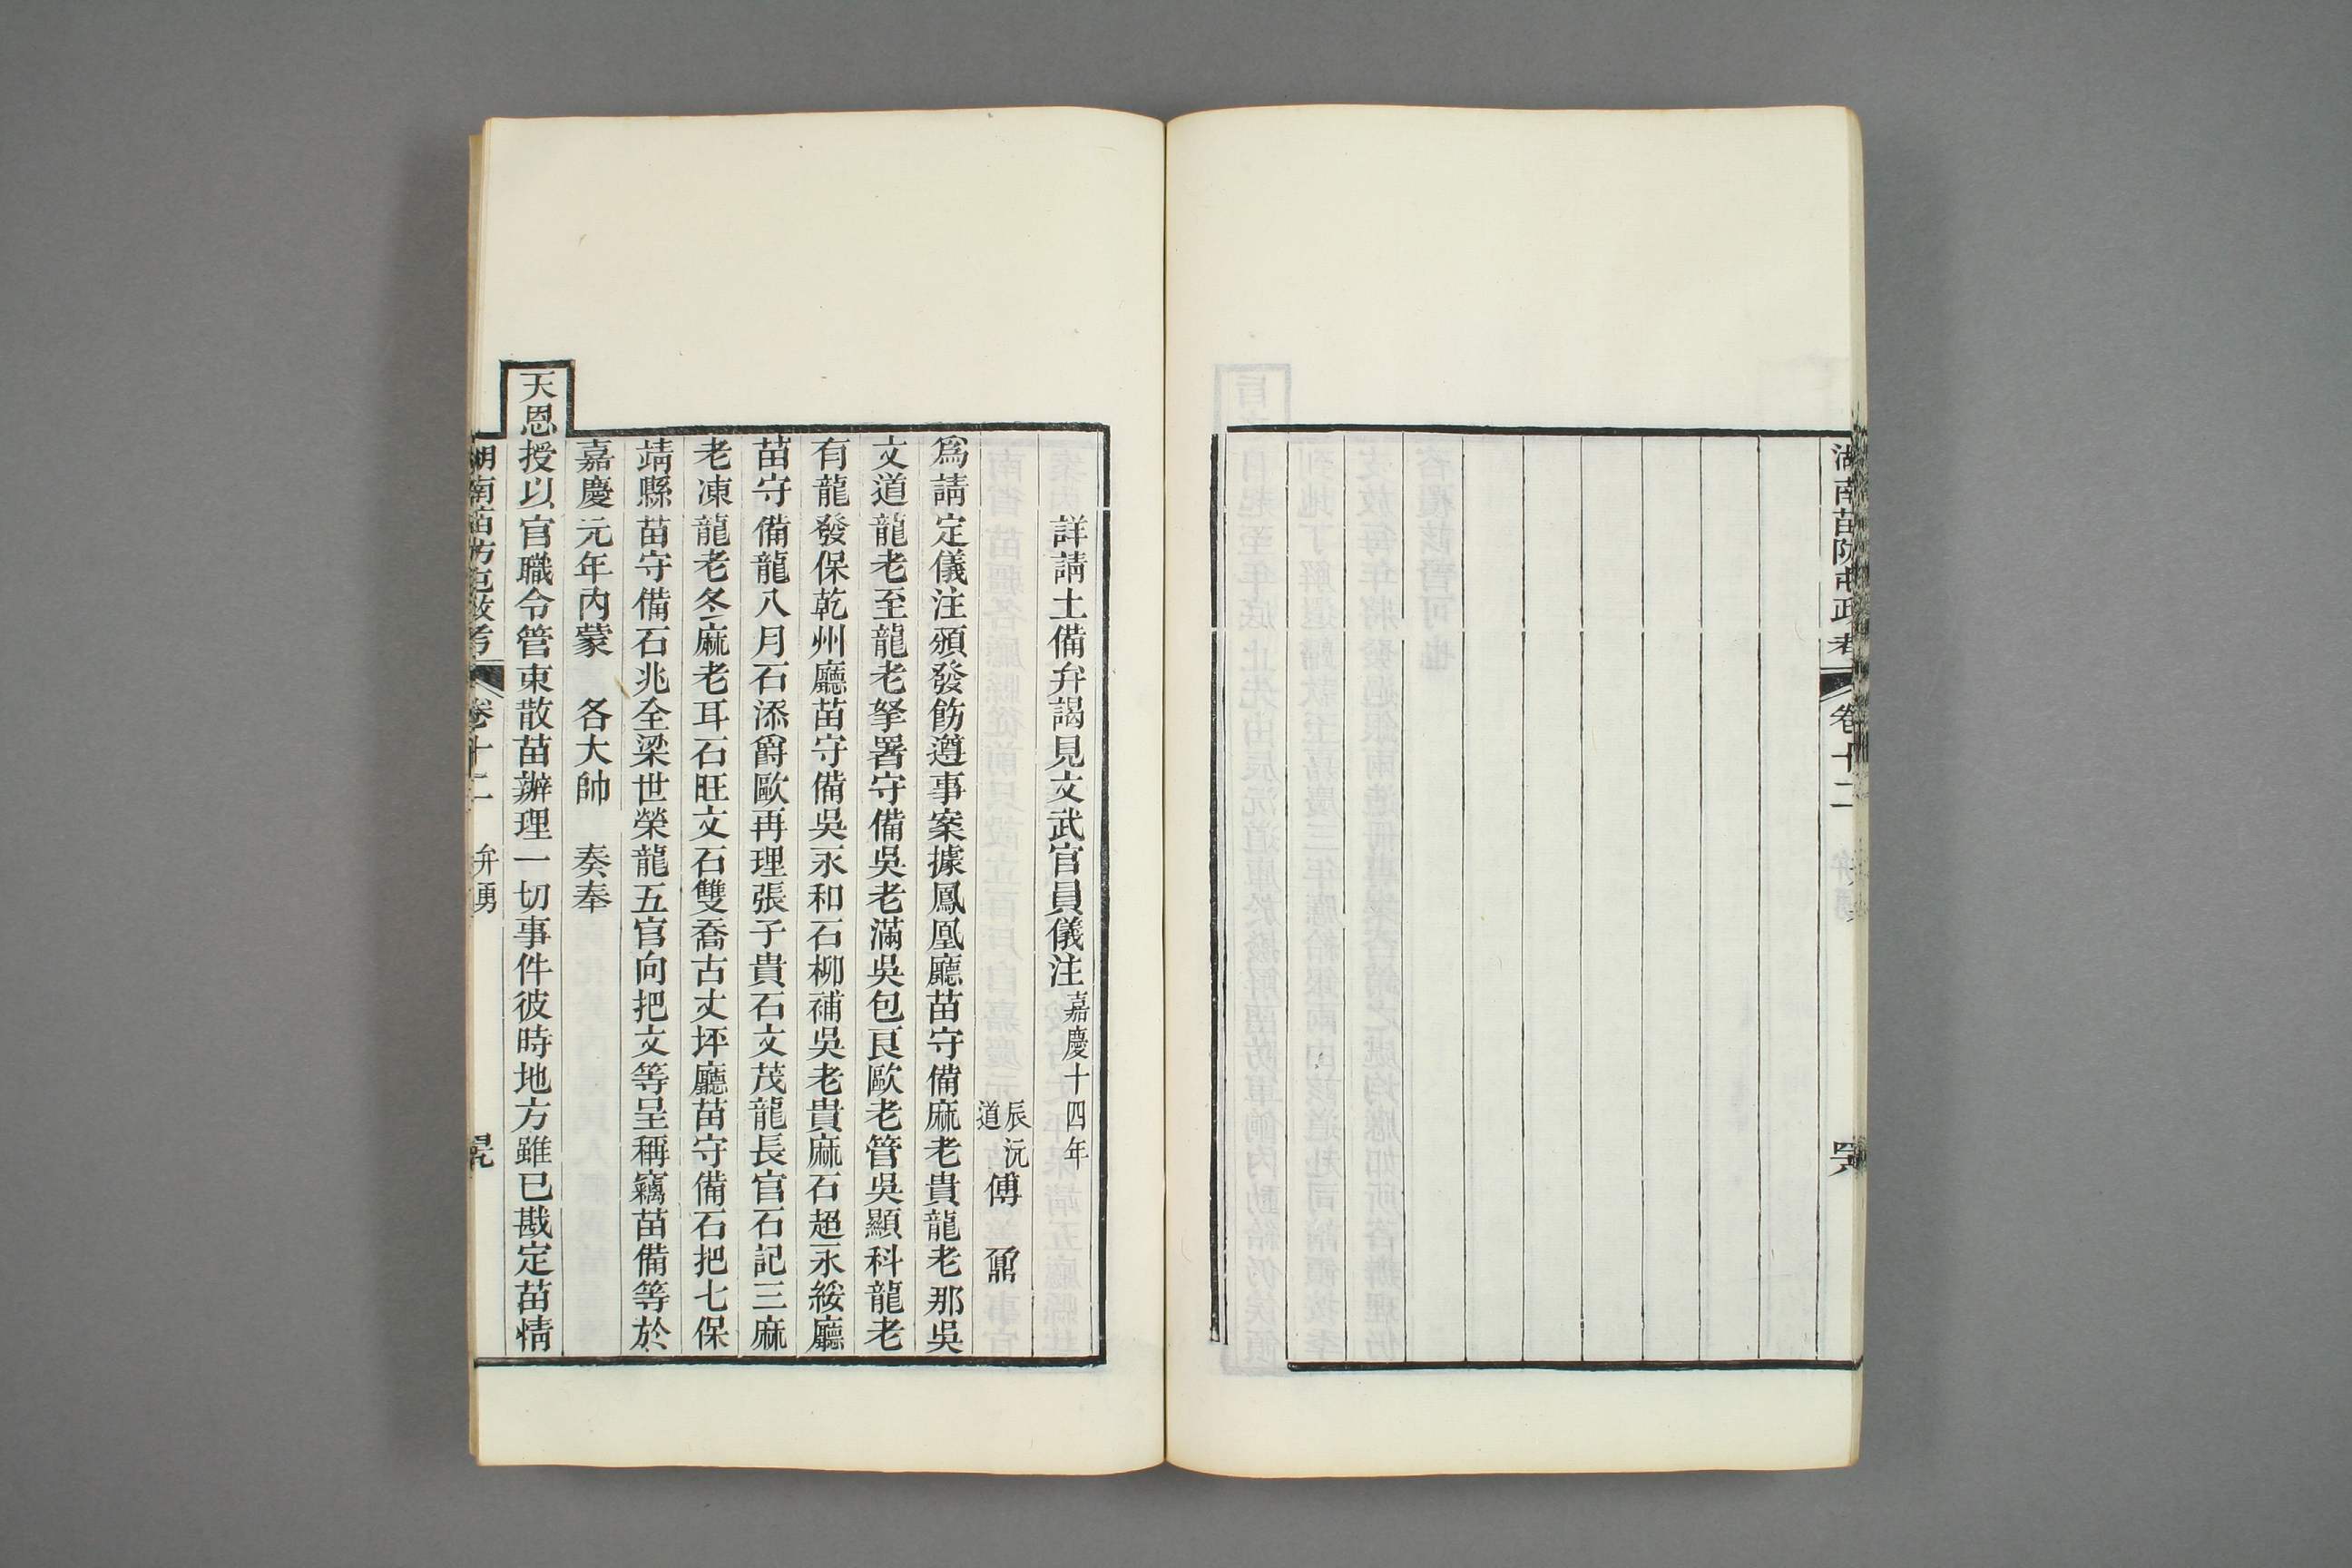 湖南苗防屯政考 卷十二 弁勇
詳請土備弁謁見文武官員儀注嘉慶十四年
辰沅道傅 鼐
為請定儀注頒發飭遵事案據鳳凰廳苗守備麻老貴龍老那吳
文道龍老至龍老拏署守備吳老滿吳包良歐老管吳顯科龍老
有龍發保乾州廳苗守備吳永和石柳補吳老貴麻石超永綏廳
苗守備龍八月石添爵歐再理張子貴石文茂龍長官石記三麻
老凍龍老冬麻老耳石旺文石雙喬古丈坪廳苗守備石把七保
靖縣苗守備石兆全梁世榮龍五官向把文等呈稱竊苗備等於
嘉慶元年內蒙 各大帥 奏奉
天恩授以官職令管束散苗辦理一切事件彼時地方雖已戡定苗情
湖南苗防屯政考 卷十二 弁勇